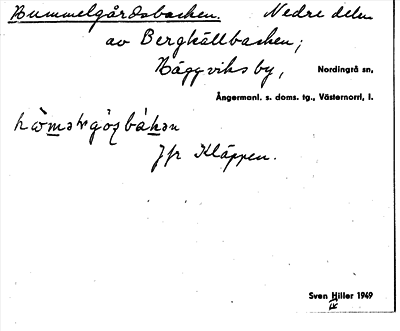 Bummelgårdsbacken. Nedre delen
av Bergkällbacken;
Häggviks by, Nordingrå sn,
Ångermanl. s. doms. tg., Västernorrl. l.
Jfr Kläppen.
Sven Hiller 1949
IX